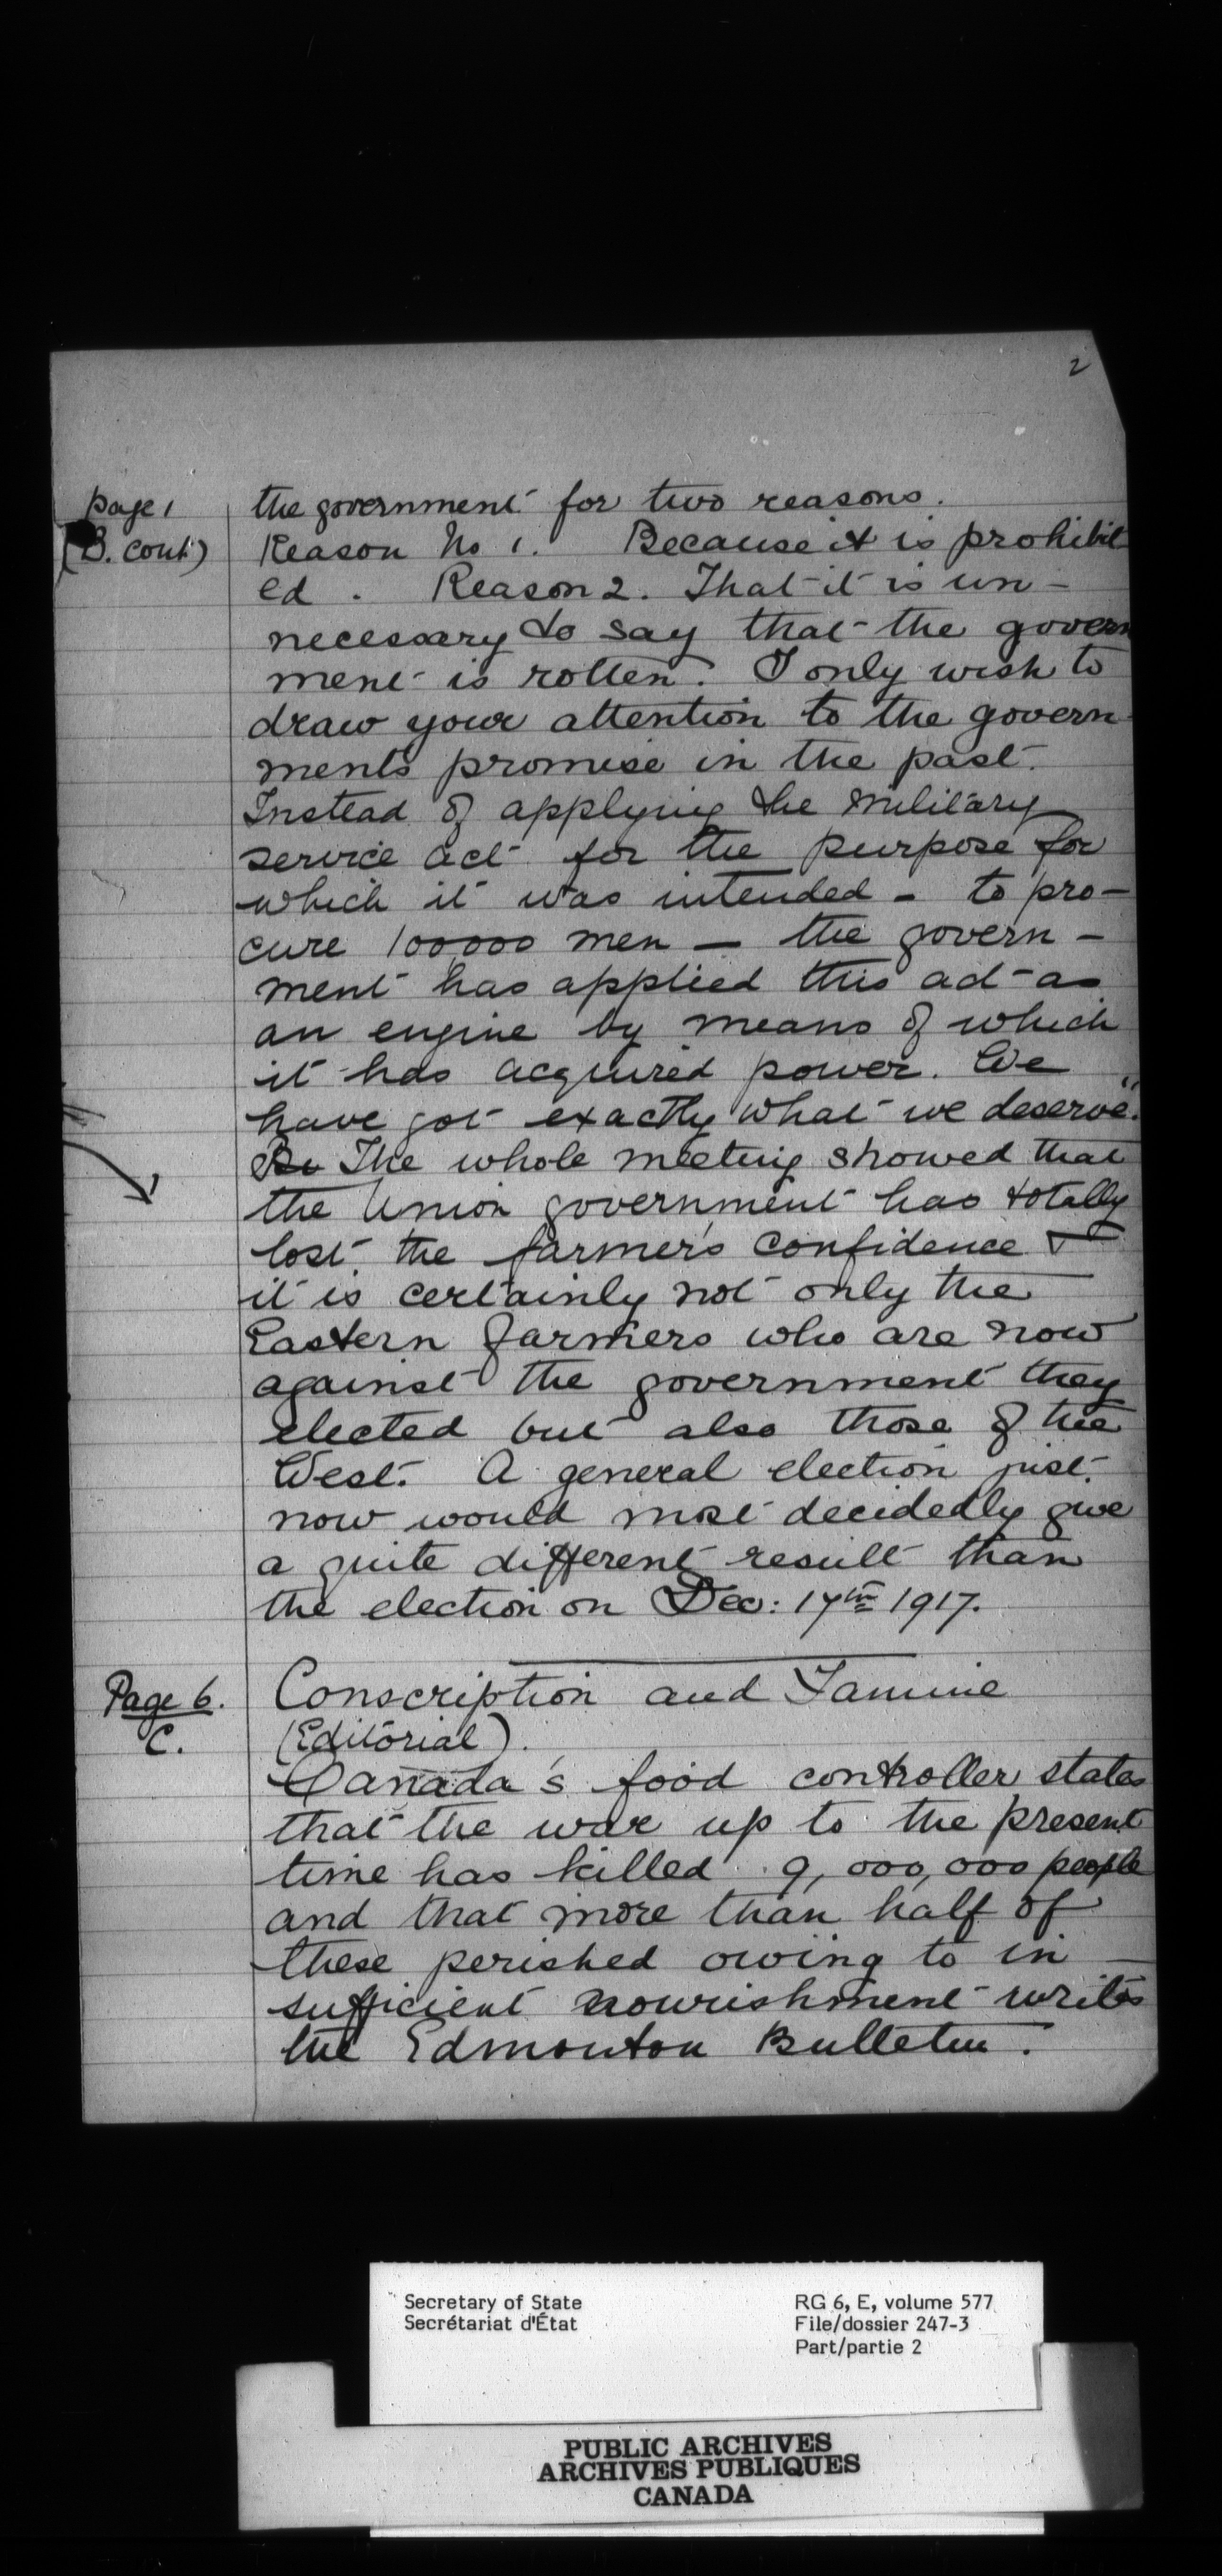 2
page 1
(B. Cont)
the government for two reasons.
Reason No 1. Because it is prohibit
ed. Reason 2. That it is un-
necessary to say that the govern
ment is rotten. I only wish to
draw your attention to the govern-
ments promise in the past.
Instead of applying the military
service act for the purpose for
which it was intended - to pro-
cure 100,000 men — the govern-
ment has applied this act as
an engine by means of which
it has acquired power. We
have got exactly what we deserve."
The whole meeting showed that
the Union government has totally
lost the farmer's confidence &
it is certainly not only the
Eastern farmers who are now
against the government they
elected but also those of the
West. A general election just
now would most decidedly give
a quite different result than
the election on Dec: 17th 1917.
Page 6.
C.
Conscription and Famine
(Editorial).
Canada's food controller states
that the war up to the present
time has killed 9,000,000 people
and that more than half of
these perished owing to in-
sufficient nourishment writes
the Edmonton Bulletin.
Secretary of State
Secrétariat d'État
RG 6, E, volume 577
File/dossier 247-3
Part/partie 2
PUBLIC ARCHIVES
ARCHIVES PUBLIQUES
CANADA